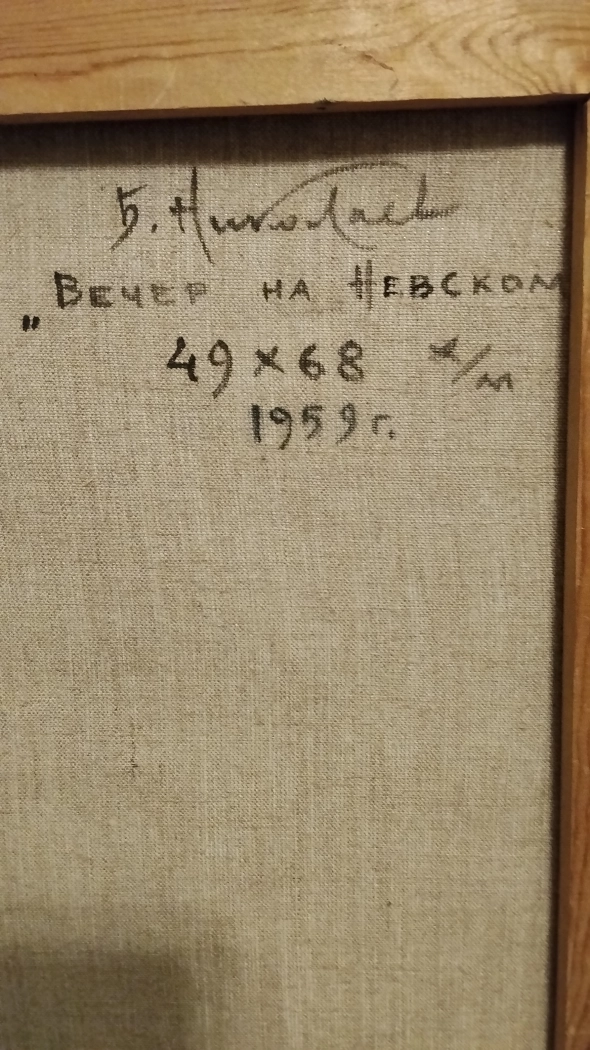 Б. Николаев
„ Вечер на Невском
49 x 68 х/м
1959 г.